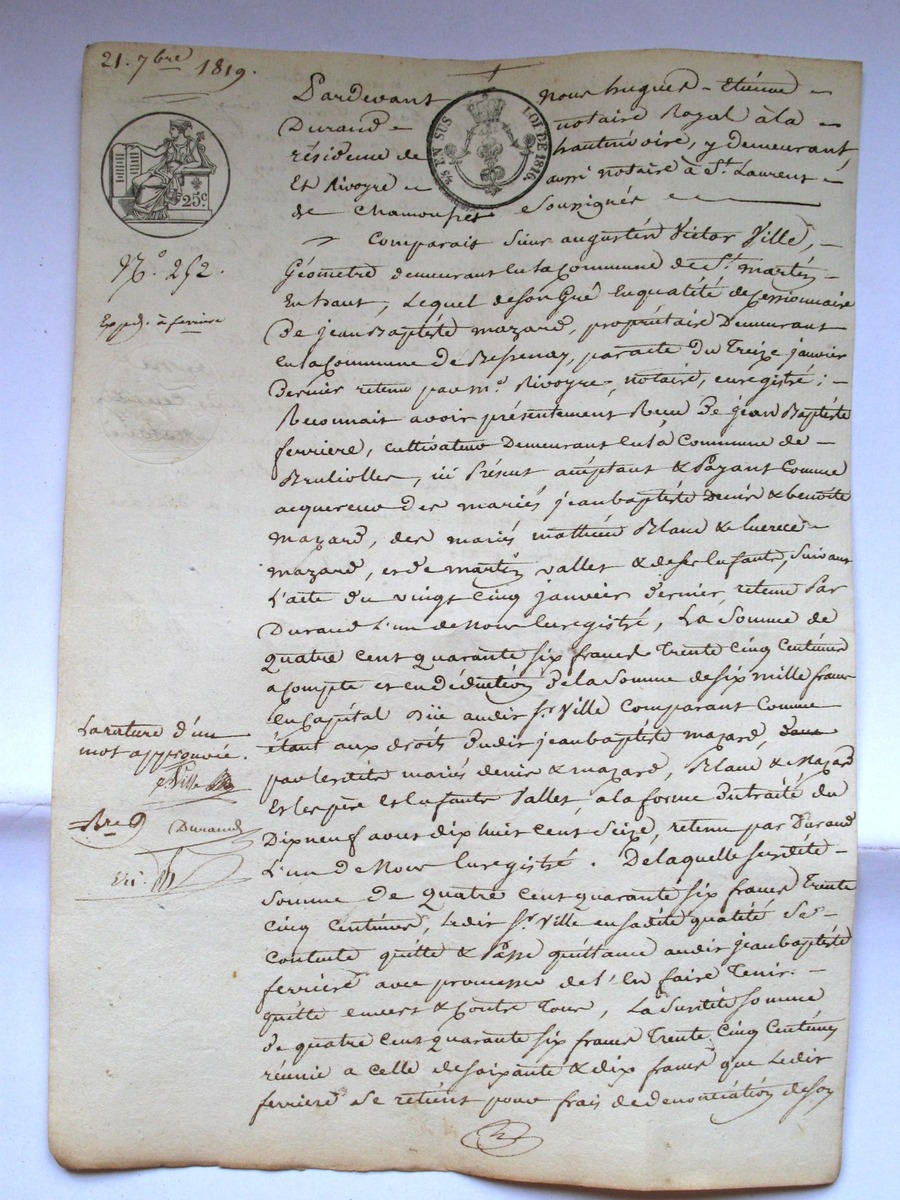 21. 7bre 1819.
Pardevant nous hugues - Etiénne -
Durand - notaire Royal à la -
résidence de hauterivoire, y Demeurant,
Et Rivoyre - aussi notaire à St. Laurent -
de Chamousset Soussignés
⅕ EN SUS LOI DE 1816.
25c
N.º 252.
Exped. à ferriere
Comparait Sieur augustin Victor Ville, -
Géometre demeurant en la Commune de St. martin -
En haut, Lequel de son Gré En qualité de Cessionnaire
De jean Baptiste mazard, propriétaire Demeurant
en la Commune De Bessenay, par acte Du Treize janvier
Dernier retenu par m.e Rivoyre, notaire, enregistré; -
Reconnait avoir présentement Recu De jean Baptiste
ferriere, cultivateur Demeurant en la Commune de -
Brulliolles, ici Présent acceptant & Payant Comme
acquereur Des mariés jean baptiste Denis & benoite
mazard, des mariés mathieu Blanc & luerece -
mazard, et de martin vallet & de ses Enfants, Suivant
L'acte Du vingt Cinq janvier Dernier, retenu Par
Durand L'un de Nous Enregistré, La Somme de
quatre Cent quarante Six francs Trente Cinq Centimes
a Compte et en Déduction De la Somme de six mille francs
En Capital Düe audit Sr. Ville Comparant Comme
étant aux droits Dudit jean baptiste mazard,
par lesdits mariés denis & mazard, Blanc & Mazard
Et les père Et Enfants Vallet, a la forme Du traité du
Dix neuf aout dix huit Cent Seize, retenu par Durand
L'un de Nous Enregistré. De laquelle Susdite -
Somme De quatre Cent quarante Six francs Trente
Cinq Centimes, Ledit Sr. Ville en sadite qualité Se -
Contente quitte & Passe quittance audit jean baptiste
ferriere avec promesse de l'En faire Tenir. -
quitte Envers & Contre Tous, La Susdite Somme
De quatre Cent quarante Six francs Trente Cinq Centimes
réunie a Celle de soixante & dix francs que Ledit
ferriere Se retient pour frais de denonciation de son
La rature d'un
mot approuvée.
Ville
Durand